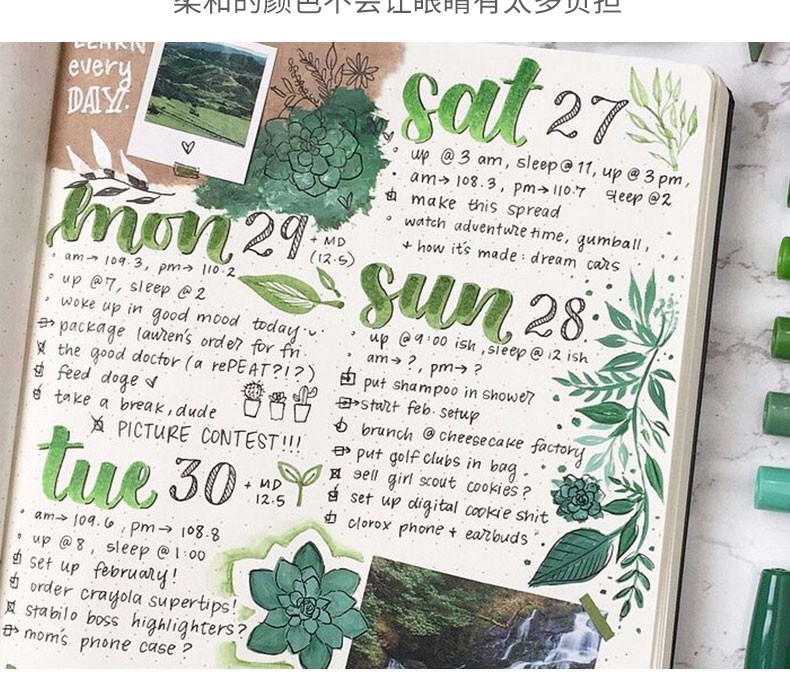 柔和的颜色不会让眼睛有太多负担
LEARN
every
DAY!
sat 27
up @ 3 am, sleep @ 11, up @ 3 pm,
am→ 108.3, pm→ 110.7 sleep @2
make this spread
watch adventure time, gumball,
+ how it's made: dream cars
mon 29
+ MD
(12.5)
am→ 109.3, pm→ 110.2
up @7, sleep @ 2
woke up in good mood today
package lauren's order for fri
the good doctor (a rePEAT?!?)
feed doge
take a break, dude
PICTURE CONTEST!!!
sun 28
up @ 9:00 ish, sleep @ 12 ish
am→ ?, pm→ ?
put shampoo in shower
start feb. setup
brunch @ cheesecake factory
put golf clubs in bag
sell girl scout cookies?
set up digital cookie shit
clorox phone + earbuds
tue 30
+ MD
12.5
am→ 109.6, pm→ 108.8
up @8, sleep @ 1:00
set up february!
order crayola supertips!
stabilo boss highlighters?
mom's phone case?